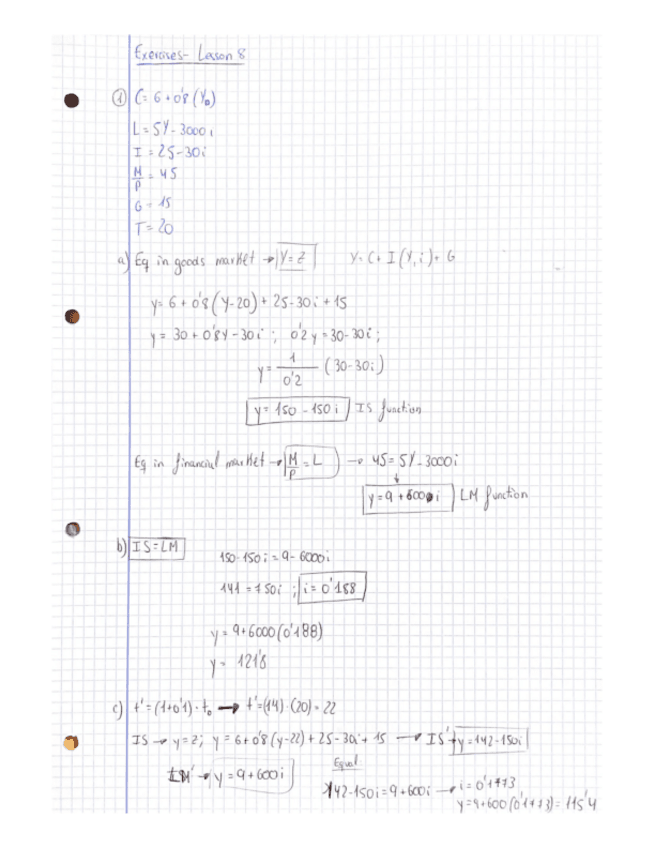 Exercises- Lesson 8
① C= 6 + 0'8 (Y_D)
L = 5Y - 3000 i
I = 25 - 30 i
M/P = 45
G = 15
T = 20
a) Eq in goods market → Y = Z Y = C + I (Y, i) + G
y = 6 + 0'8 (y-20) + 25 - 30 i + 15
y = 30 + 0'8 Y - 30 i ; 0'2 y = 30 - 30 i ;
y = 1/0'2 (30 - 30 i)
y = 150 - 150 i IS function
Eq in financial market → M/P = L → 45 = 5Y - 3000 i
y = 9 + 600 i LM function
b) IS = LM
150 - 150 i = 9 - 6000 i
141 = 750 i ; i = 0'188
y = 9 + 6000 (0'188)
y = 121'8
c) t' = (1+0'1) · t₀ → t' = (14) · (20) = 22
IS → y = z ; y = 6 + 0'8 (y-22) + 25 - 30 i + 15 → IS' → y = 142 - 150 i
LM' → y = 9 + 600 i
Equal
142 - 150 i = 9 + 600 i → i = 0'1773
y = 9 + 600 (0'1773) = 115'4